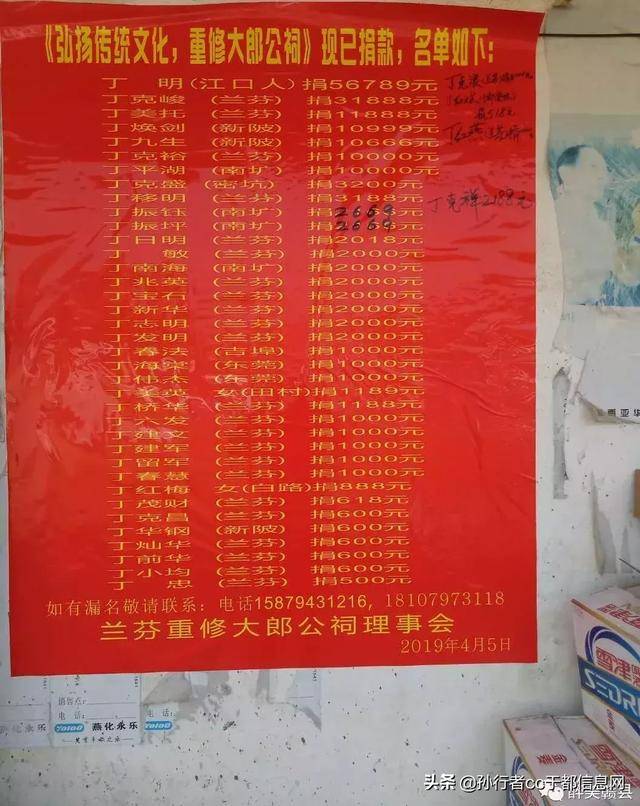 《弘扬传统文化，重修大郎公祠》现已捐款，名单如下：
丁 明(江口人)捐56789元
丁克峻(兰芬) 捐31888元
丁美托(兰芬) 捐11888元
丁焕剑(新陂) 捐10999元
丁九生(新陂) 捐10666元
丁克裕(兰芬) 捐10000元
丁平湖(南圹) 捐10000元
丁克盛(密坑) 捐3200元
丁移明(兰芬) 捐3188元
丁振钰(南圹) 捐2669元
丁振坪(南圹) 捐2669元
丁日明(兰芬) 捐2018元
丁 敏(兰芬) 捐2000元
丁南海(南圹) 捐2000元
丁兆英(兰芬) 捐2000元
丁宝石(兰芬) 捐2000元
丁新华(兰芬) 捐2000元
丁志明(兰芬) 捐2000元
丁发明(兰芬) 捐2000元
丁春法(吉埠) 捐1000元
丁海(东莞) 捐1000元
丁伟杰(东莞) 捐1000元
丁英 女(田村)捐1189元
丁桥华(兰芬) 捐1188元
丁发(兰芬) 捐1000元
丁建文(兰芬) 捐1000元
丁建军(兰芬) 捐1000元
丁留军(兰芬) 捐1000元
丁春慧(兰芬) 捐1000元
丁红梅 女(白路)捐888元
丁茂财(兰芬) 捐618元
丁克昌(兰芬) 捐600元
丁华钢(新陂) 捐600元
丁灿华(兰芬) 捐600元
丁前华(兰芬) 捐600元
丁小均(兰芬) 捐600元
丁 忠(兰芬) 捐500元
丁克祥2188元
如有漏名敬请联系：电话15879431216，18107973118
兰芬重修大郎公祠理事会
2019年4月5日
销售点：
电话：
燕化永乐
燕化永乐
雪津
SEDRI
头条 @孙行者cc于都信息网
醉美赣县